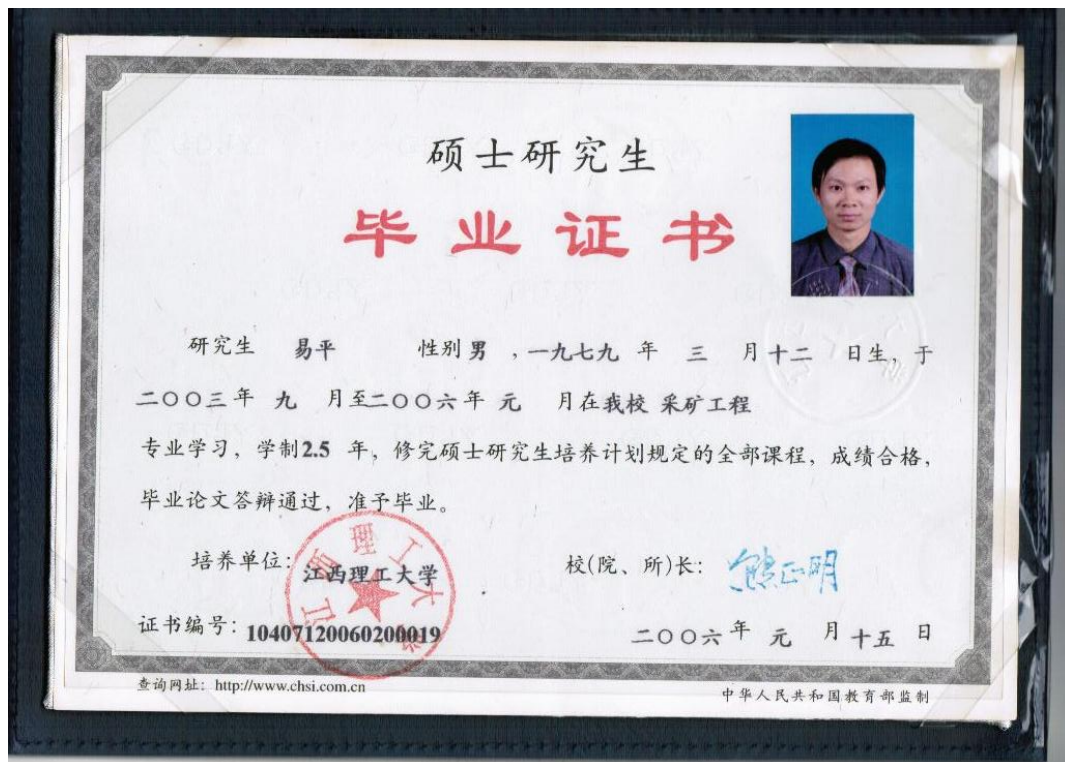 硕士研究生
毕业证书
研究生 易平 性别 男 ，一九七九 年 三 月 十二 日生，于
二〇〇三 年 九 月至 二〇〇六 年 元 月在我校 采矿工程
专业学习，学制 2.5 年，修完硕士研究生培养计划规定的全部课程，成绩合格，
毕业论文答辩通过，准予毕业。
培养单位：江西理工大学 校(院、所)长：熊正明
江西理工大学
证书编号：104071200602000019
二〇〇六 年 元 月 十五 日
查询网址：http://www.chsi.com.cn
中华人民共和国教育部监制